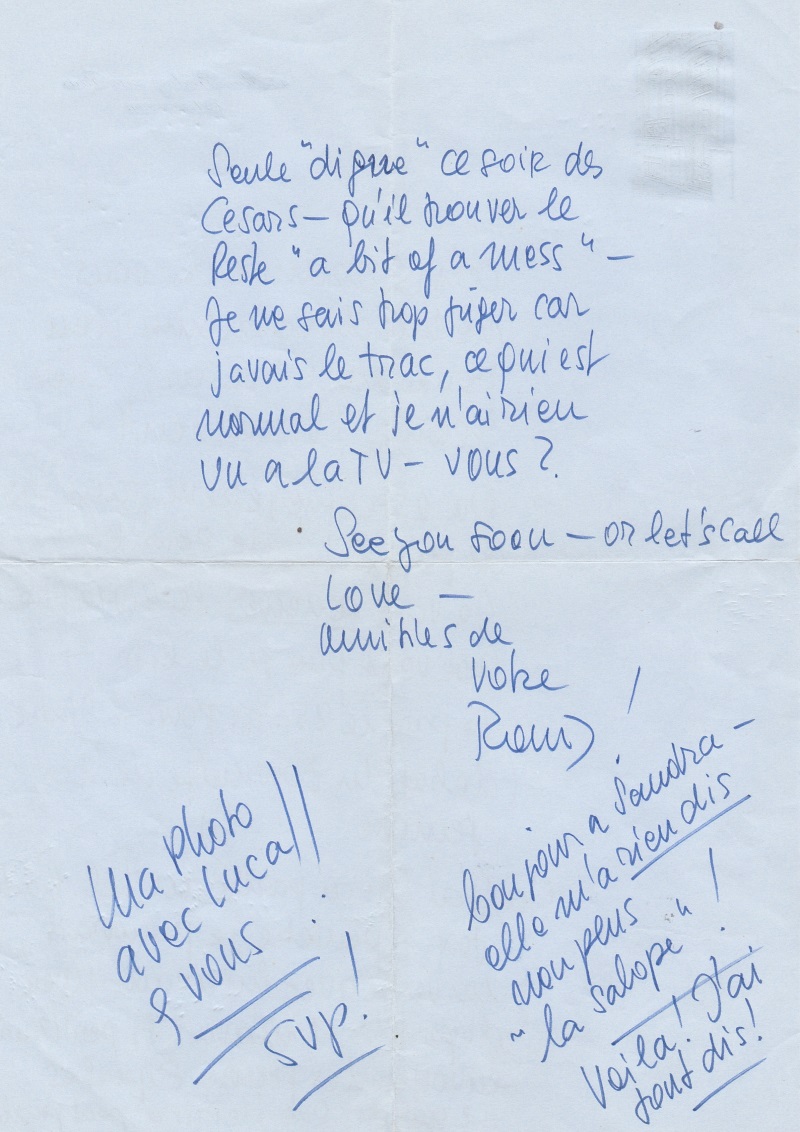 Seule "digne" ce soir des
Cesars – qu'il trouver le
Reste "a bit of a mess" –
Je ne sais trop juger car
javais le trac, ce qui est
normal et je n'ai rien
vu a la TV – vous ?
See you soon – or let's call
Love –
amitiés de
votre
Romy !
Ma photo
avec Luca
& vous
svp !
bonjour a Sandra –
elle m'a rien dis
non plus !
"la salope"
Voila ! J'ai
tout dis !